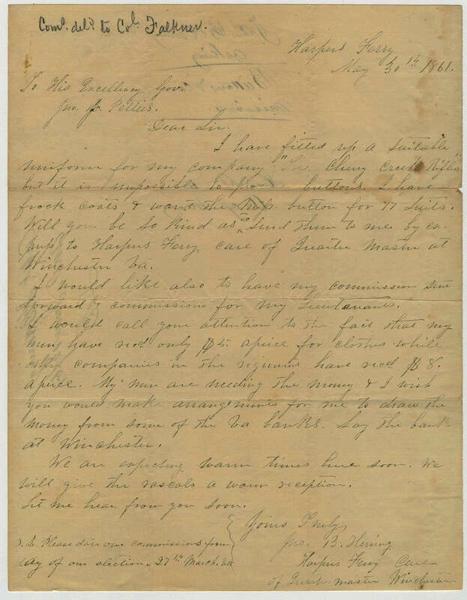 Com. del.d to Col. Falkner.
Harpers Ferry
May 30th 1861.
To His Excellency Gov.
Jno. J. Pettus.
Dear Sir,
I have fitted up a suitable
uniform for my company "The Chewy Creek Rifles"
but it is impossible to buttons. I have
frock coats & want the Miss. button for 77 suits.
Will you be so kind as to send them to me by ex-
press to Harpers Ferry, care of Quarter Master at
Winchester Va.
I would like also to have my commission sent
forward & commissions for my Lieutenants.
I would call your attention to the fact that my
men have recd only $4. apiece for clothes while
other companies in the regiment have recd $8.
apiece. My men are needing the money & I wish
you would make arrangements for me to draw the
money from some of the Va banks. Say the bank
at Winchester.
We are expecting warm times here soon. We
will give the rascals a warm reception.
Let me hear from you soon.
Yours Truly,
Jno. B. Herring
Harpers Ferry Care
of Quarter Master Winchester
P.S. Please date our commissions from
day of our election, 27th March.